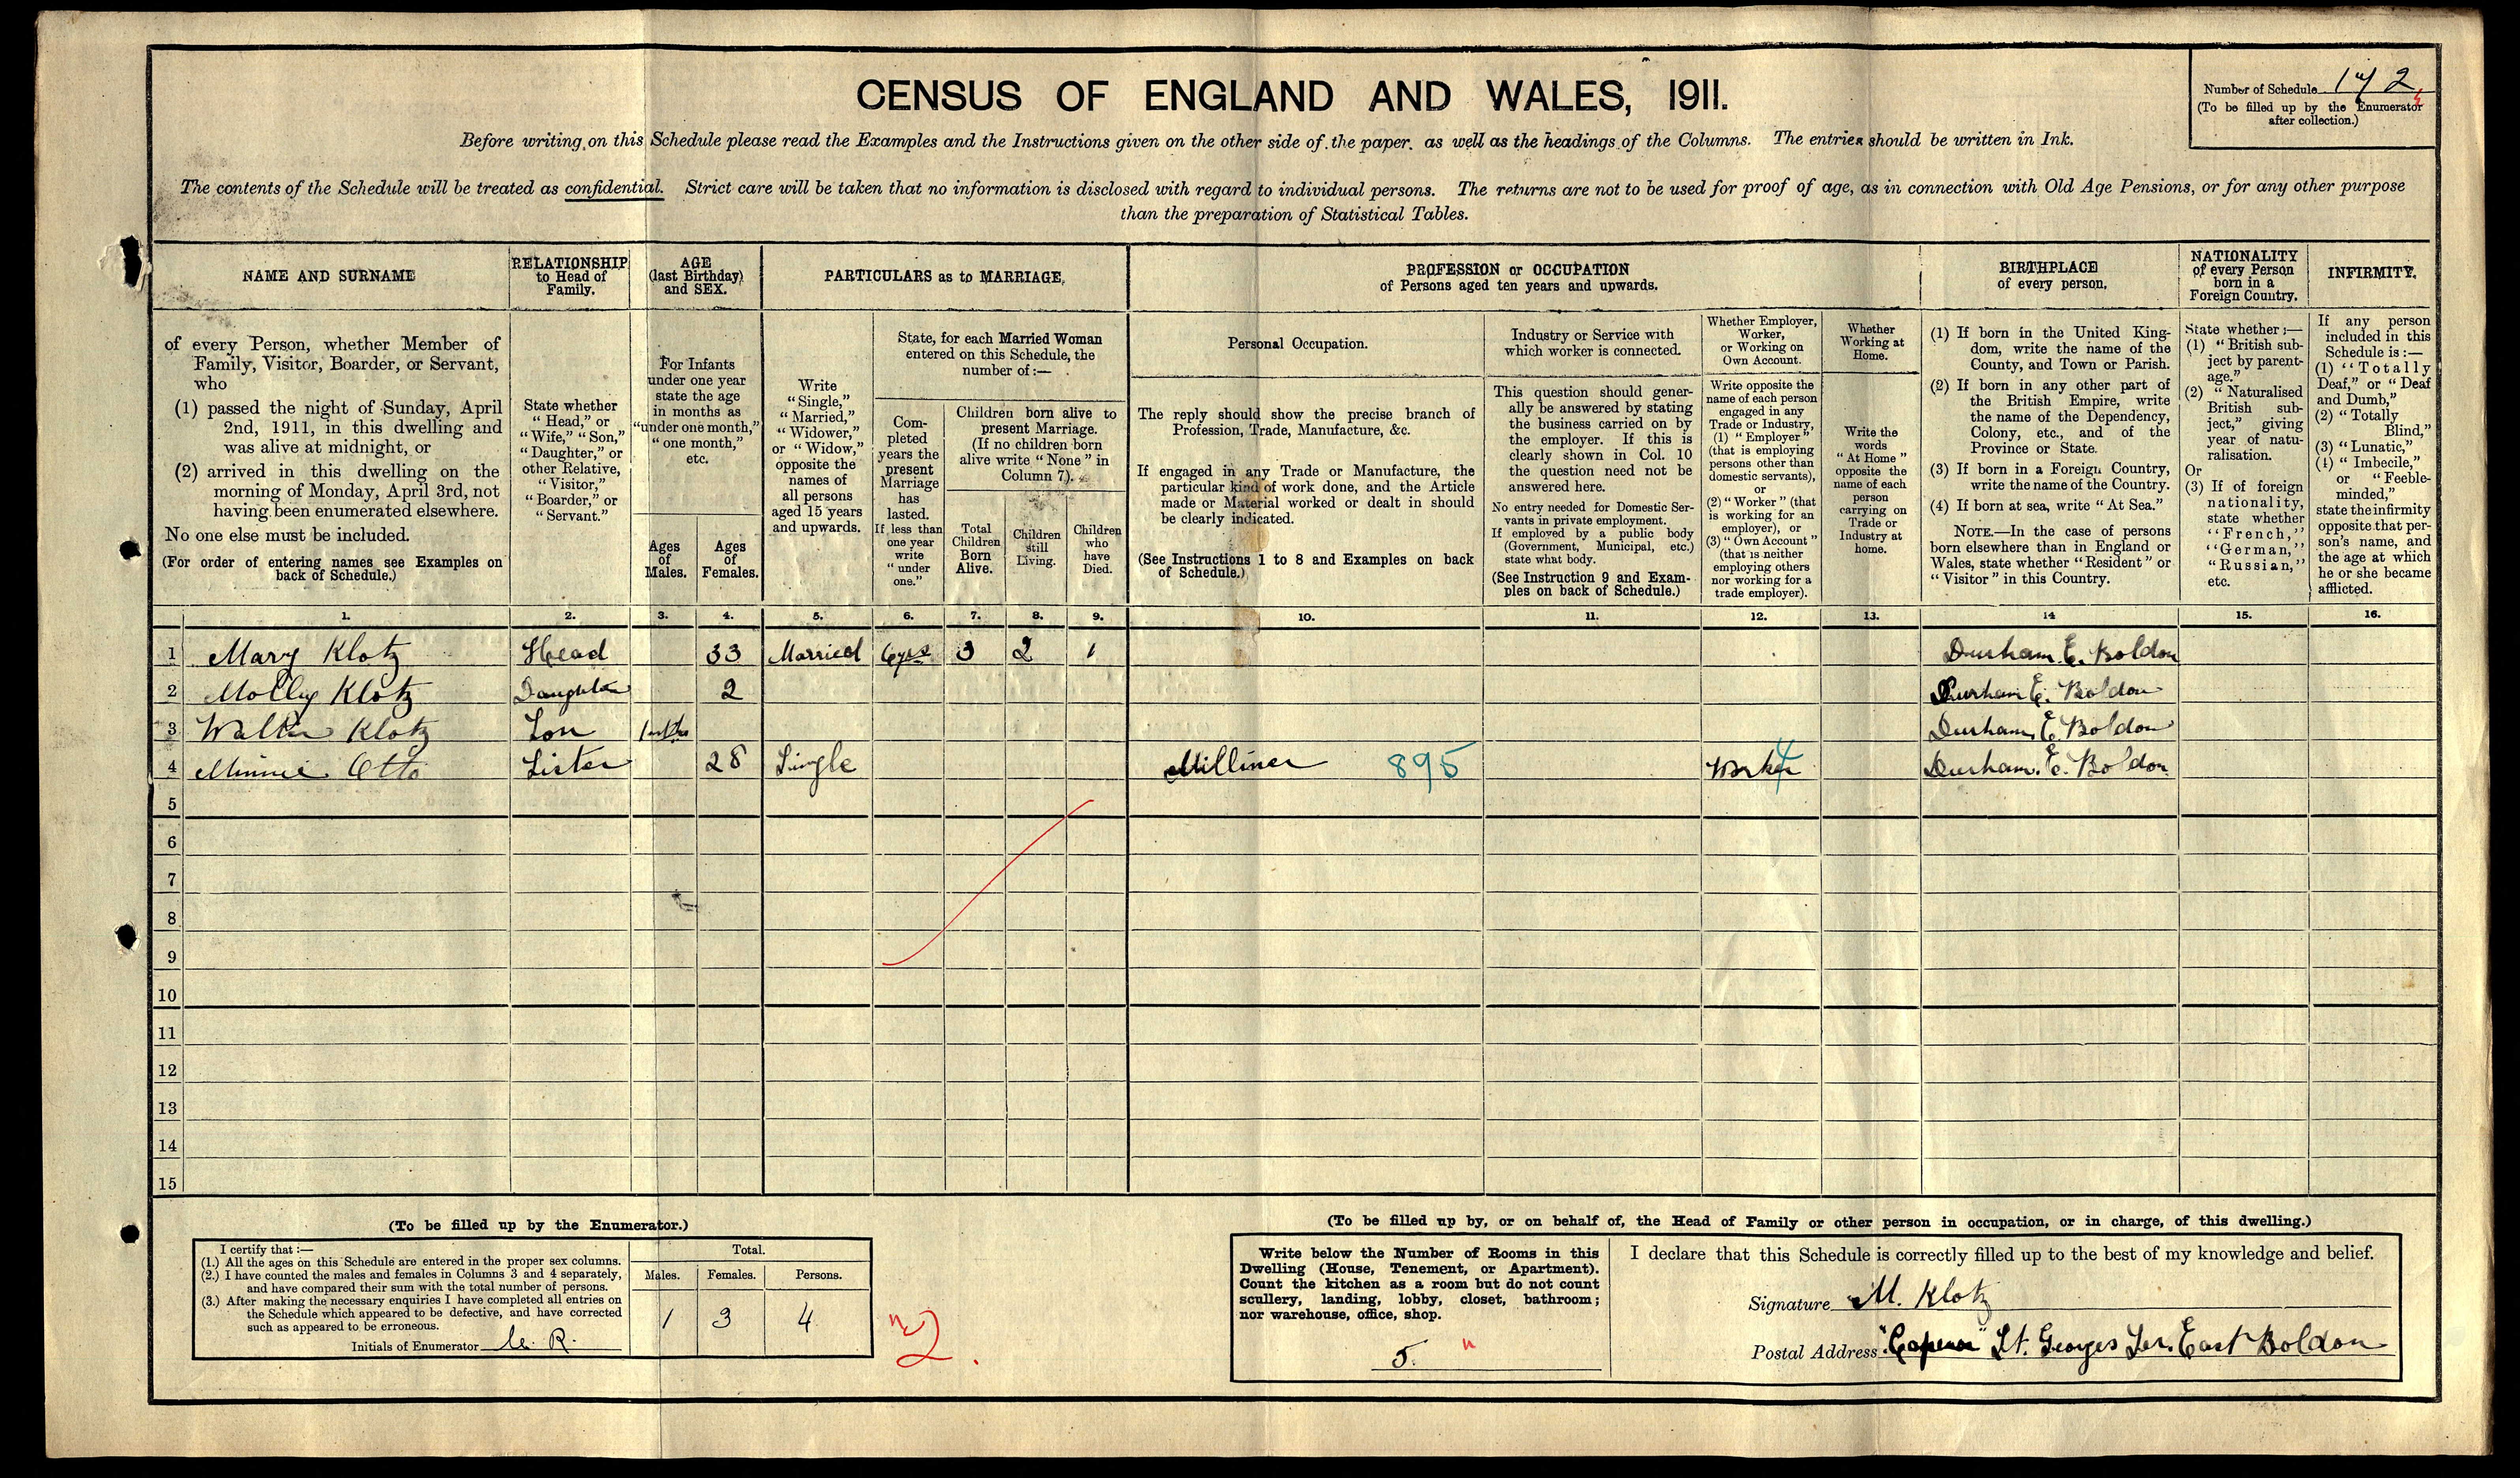 CENSUS OF ENGLAND AND WALES, 1911.
Number of Schedule 172
(To be filled up by the Enumerator
after collection.)
Before writing on this Schedule please read the Examples and the Instructions given on the other side of the paper, as well as the headings of the Columns. The entries should be written in Ink.
The contents of the Schedule will be treated as confidential. Strict care will be taken that no information is disclosed with regard to individual persons. The returns are not to be used for proof of age, as in connection with Old Age Pensions, or for any other purpose
than the preparation of Statistical Tables.
NAME AND SURNAME
of every Person, whether Member of
Family, Visitor, Boarder, or Servant,
who
(1) passed the night of Sunday, April
2nd, 1911, in this dwelling and
was alive at midnight, or
(2) arrived in this dwelling on the
morning of Monday, April 3rd, not
having been enumerated elsewhere.
No one else must be included.
(For order of entering names see Examples on
back of Schedule.)
RELATIONSHIP
to Head of
Family.
State whether
"Head," or
"Wife," "Son,"
"Daughter," or
other Relative,
"Visitor,"
"Boarder," or
"Servant."
AGE
(last Birthday)
and SEX.
For Infants
under one year
state the age
in months as
"under one month,"
"one month,"
etc.
Ages
of
Males.
Ages
of
Females.
PARTICULARS as to MARRIAGE.
Write
"Single,"
"Married,"
"Widower,"
or "Widow,"
opposite the
names of
all persons
aged 15 years
and upwards.
State, for each Married Woman
entered on this Schedule, the
number of:—
Com-
pleted
years the
present
Marriage
has
lasted.
If less than
one year
write
"under
one."
Children born alive to
present Marriage.
(If no children born
alive write "None" in
Column 7).
Total
Children
Born
Alive.
Children
still
Living.
Children
who
have
Died.
PROFESSION or OCCUPATION
of Persons aged ten years and upwards.
Personal Occupation.
The reply should show the precise branch of
Profession, Trade, Manufacture, &c.
If engaged in any Trade or Manufacture, the
particular kind of work done, and the Article
made or Material worked or dealt in should
be clearly indicated.
(See Instructions 1 to 8 and Examples on back
of Schedule.)
Industry or Service with
which worker is connected.
This question should gener-
ally be answered by stating
the business carried on by
the employer. If this is
clearly shown in Col. 10
the question need not be
answered here.
No entry needed for Domestic Ser-
vants in private employment.
If employed by a public body
(Government, Municipal, etc.)
state what body.
(See Instruction 9 and Exam-
ples on back of Schedule.)
Whether Employer,
Worker,
or Working on
Own Account.
Write opposite the
name of each person
engaged in any
Trade or Industry,
(1) "Employer"
(that is employing
persons other than
domestic servants),
or
(2) "Worker" (that
is working for an
employer), or
(3) "Own Account"
(that is neither
employing others
nor working for a
trade employer).
Whether
Working at
Home.
Write the
words
"At Home"
opposite the
name of each
person
carrying on
Trade or
Industry at
home.
BIRTHPLACE
of every person.
(1) If born in the United King-
dom, write the name of the
County, and Town or Parish.
(2) If born in any other part of
the British Empire, write
the name of the Dependency,
Colony, etc., and of the
Province or State.
(3) If born in a Foreign Country,
write the name of the Country.
(4) If born at sea, write "At Sea."
NOTE.—In the case of persons
born elsewhere than in England or
Wales, state whether "Resident" or
"Visitor" in this Country.
NATIONALITY
of every Person
born in a
Foreign Country.
State whether:—
(1) "British sub-
ject by parent-
age."
(2) "Naturalised
British sub-
ject," giving
year of natu-
ralisation.
Or
(3) If of foreign
nationality,
state whether
"French,"
"German,"
"Russian,"
etc.
INFIRMITY.
If any person
included in this
Schedule is:—
(1) "Totally
Deaf," or "Deaf
and Dumb,"
(2) "Totally
Blind,"
(3) "Lunatic,"
(4) "Imbecile,"
or "Feeble-
minded,"
state the infirmity
opposite that per-
son's name, and
the age at which
he or she became
afflicted.
1. 2. 3. 4. 5. 6. 7. 8. 9. 10. 11. 12. 13. 14 15. 16.
1 Mary Klotz Head 33 Married 6 yrs 3 2 1 Durham E. Boldon
2 Molly Klotz Daughter 2 Durham E. Boldon
3 Walter Klotz Son Durham E. Boldon
4 Minnie Otto Sister 28 Single Milliner 895 Worker 4 Durham E. Boldon
5
6
7
8
9
10
11
12
13
14
15
(To be filled up by the Enumerator.)
I certify that:—
(1.) All the ages on this Schedule are entered in the proper sex columns.
(2.) I have counted the males and females in Columns 3 and 4 separately,
and have compared their sum with the total number of persons.
(3.) After making the necessary enquiries I have completed all entries on
the Schedule which appeared to be defective, and have corrected
such as appeared to be erroneous.
Initials of Enumerator R.
Total.
Males. Females. Persons.
1 3 4
2.
(To be filled up by, or on behalf of, the Head of Family or other person in occupation, or in charge, of this dwelling.)
Write below the Number of Rooms in this
Dwelling (House, Tenement, or Apartment).
Count the kitchen as a room but do not count
scullery, landing, lobby, closet, bathroom;
nor warehouse, office, shop.
5.
I declare that this Schedule is correctly filled up to the best of my knowledge and belief.
Signature M. Klotz
Postal Address St. Georges Ter. East Boldon